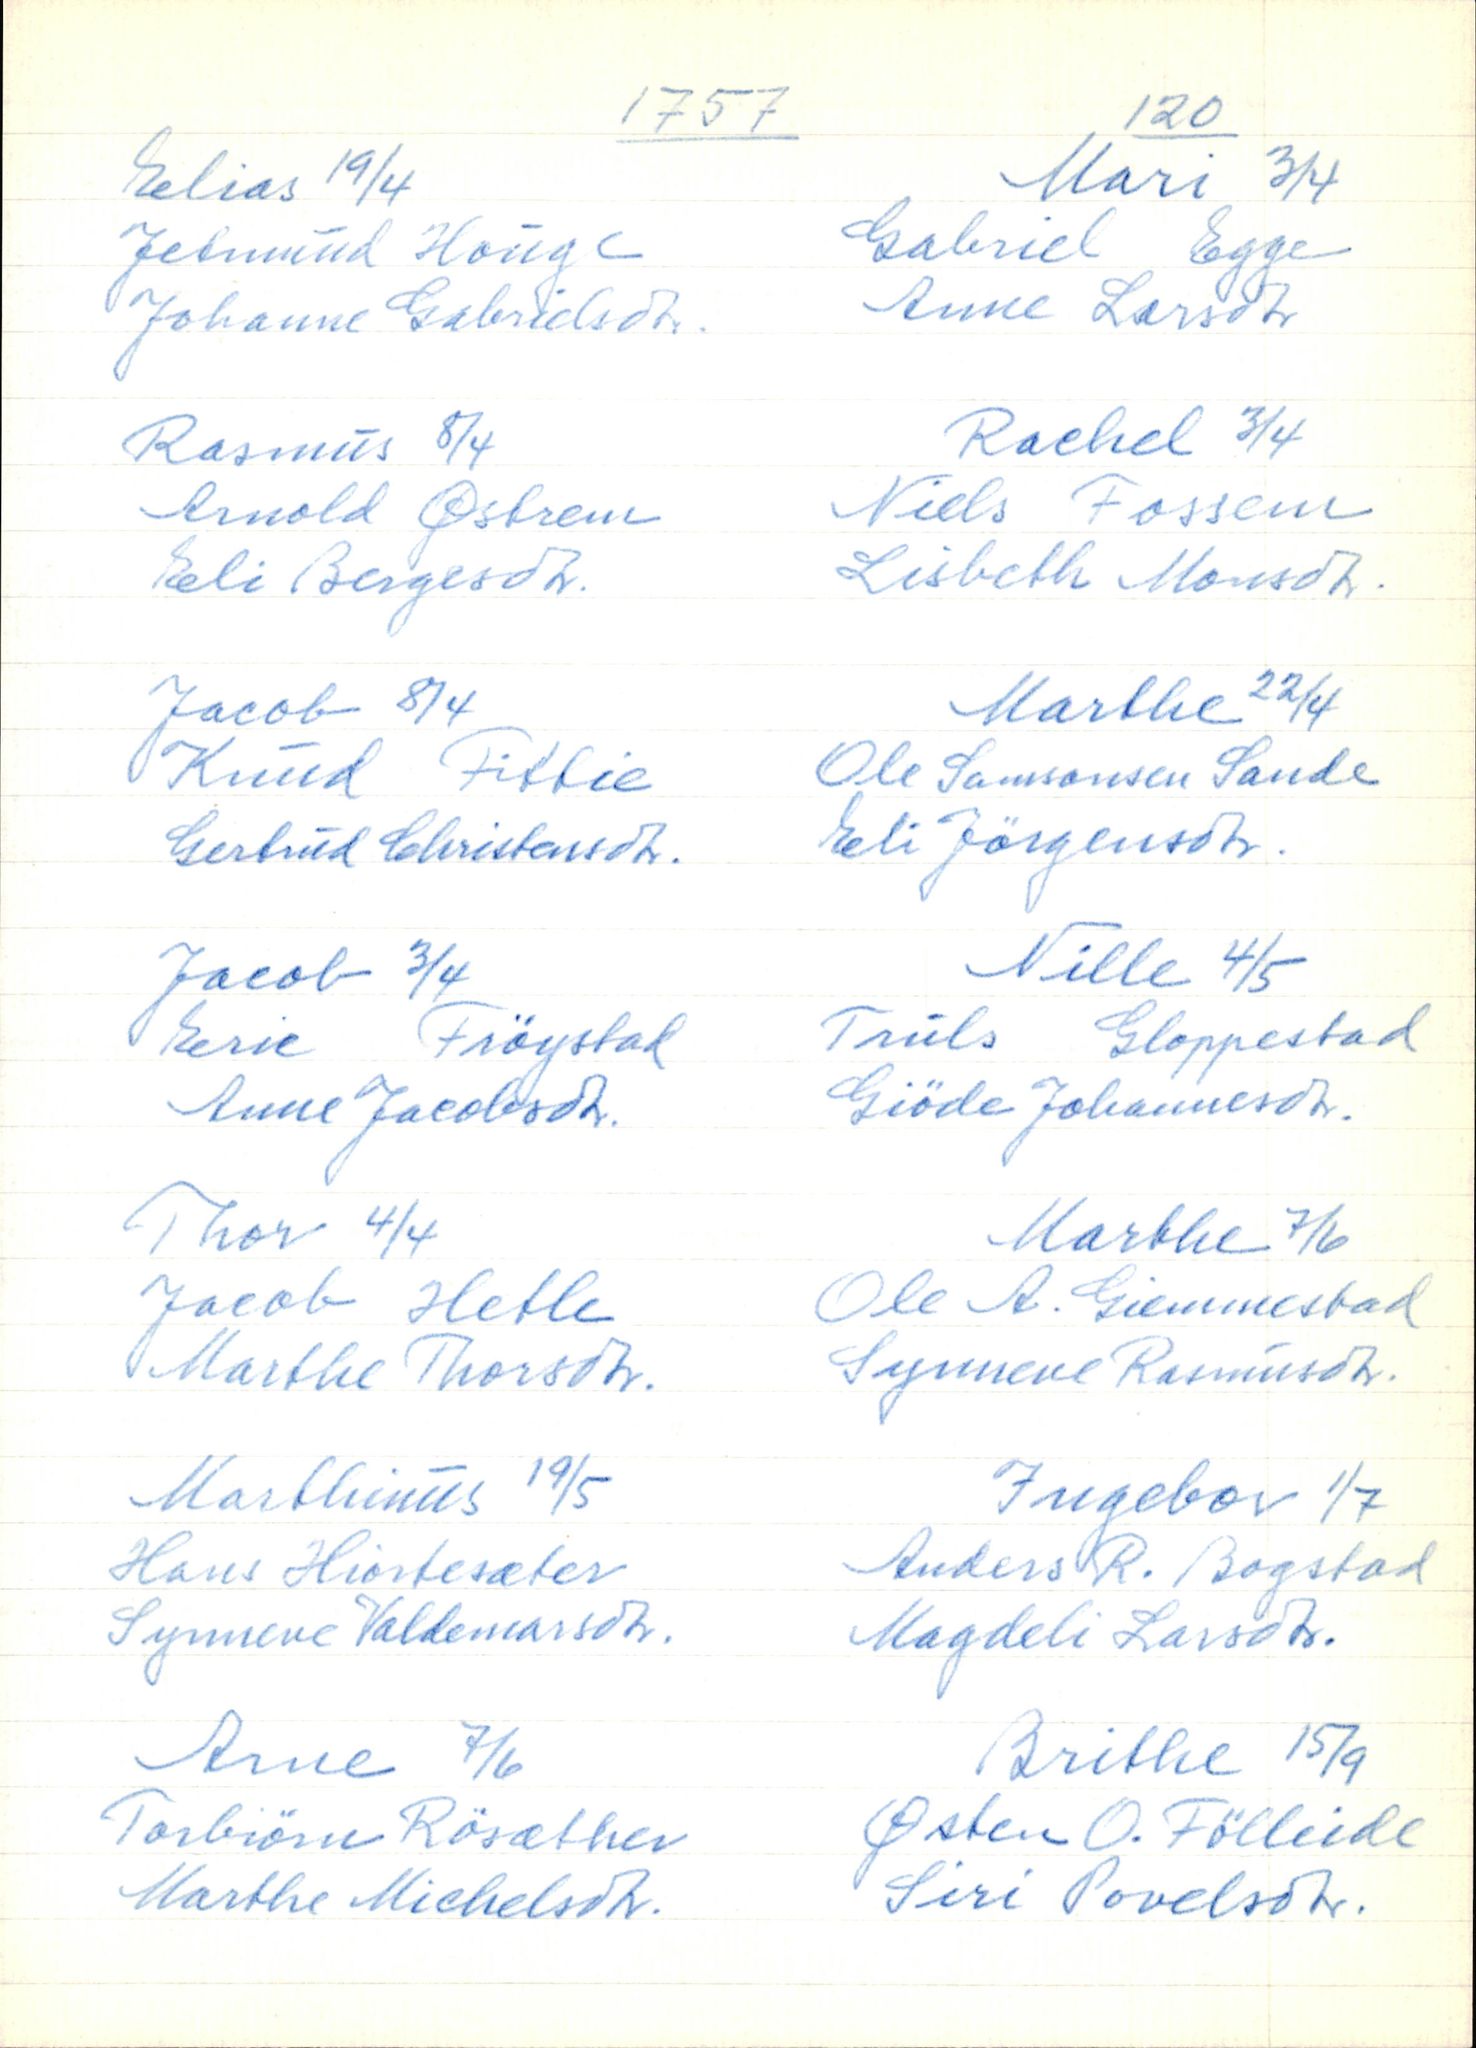 1757
120
Eelias 19/4
Jetmund Houge
Johanne Gabrielsdtr.
Rasmus 8/4
Arnold Østrem
Eeli Bergesdtr.
Jacob 8/4
Knud Fittie
Gertrud Christensdtr.
Jacob 3/4
Eeric Fröystad
Anne Jacobsdtr.
Thor 4/4
Jacob Hetle
Marthe Thorsdtr.
Marthinus 19/5
Hans Hiortesæter
Synneve Valdemarsdtr.
Arne 7/6
Torbiörn Rösæther
Marthe Michelsdtr.
Mari 3/4
Gabriel Egge
Anne Larsdtr
Rachel 3/4
Niels Fossem
Lisbeth Monsdtr.
Marthe 22/4
Ole Samsonsen Sande
Eeli Jörgensdtr.
Nille 4/5
Truls Gloppestad
Giöde Johannesdtr.
Marthe 7/6
Ole A. Giemmestad
Synneve Rasmusdtr.
Ingebor 1/7
Anders R. Bogstad
Magdeli Larsdtr.
Brithe 15/9
Østen O. Fölleide
Siri Povelsdtr.